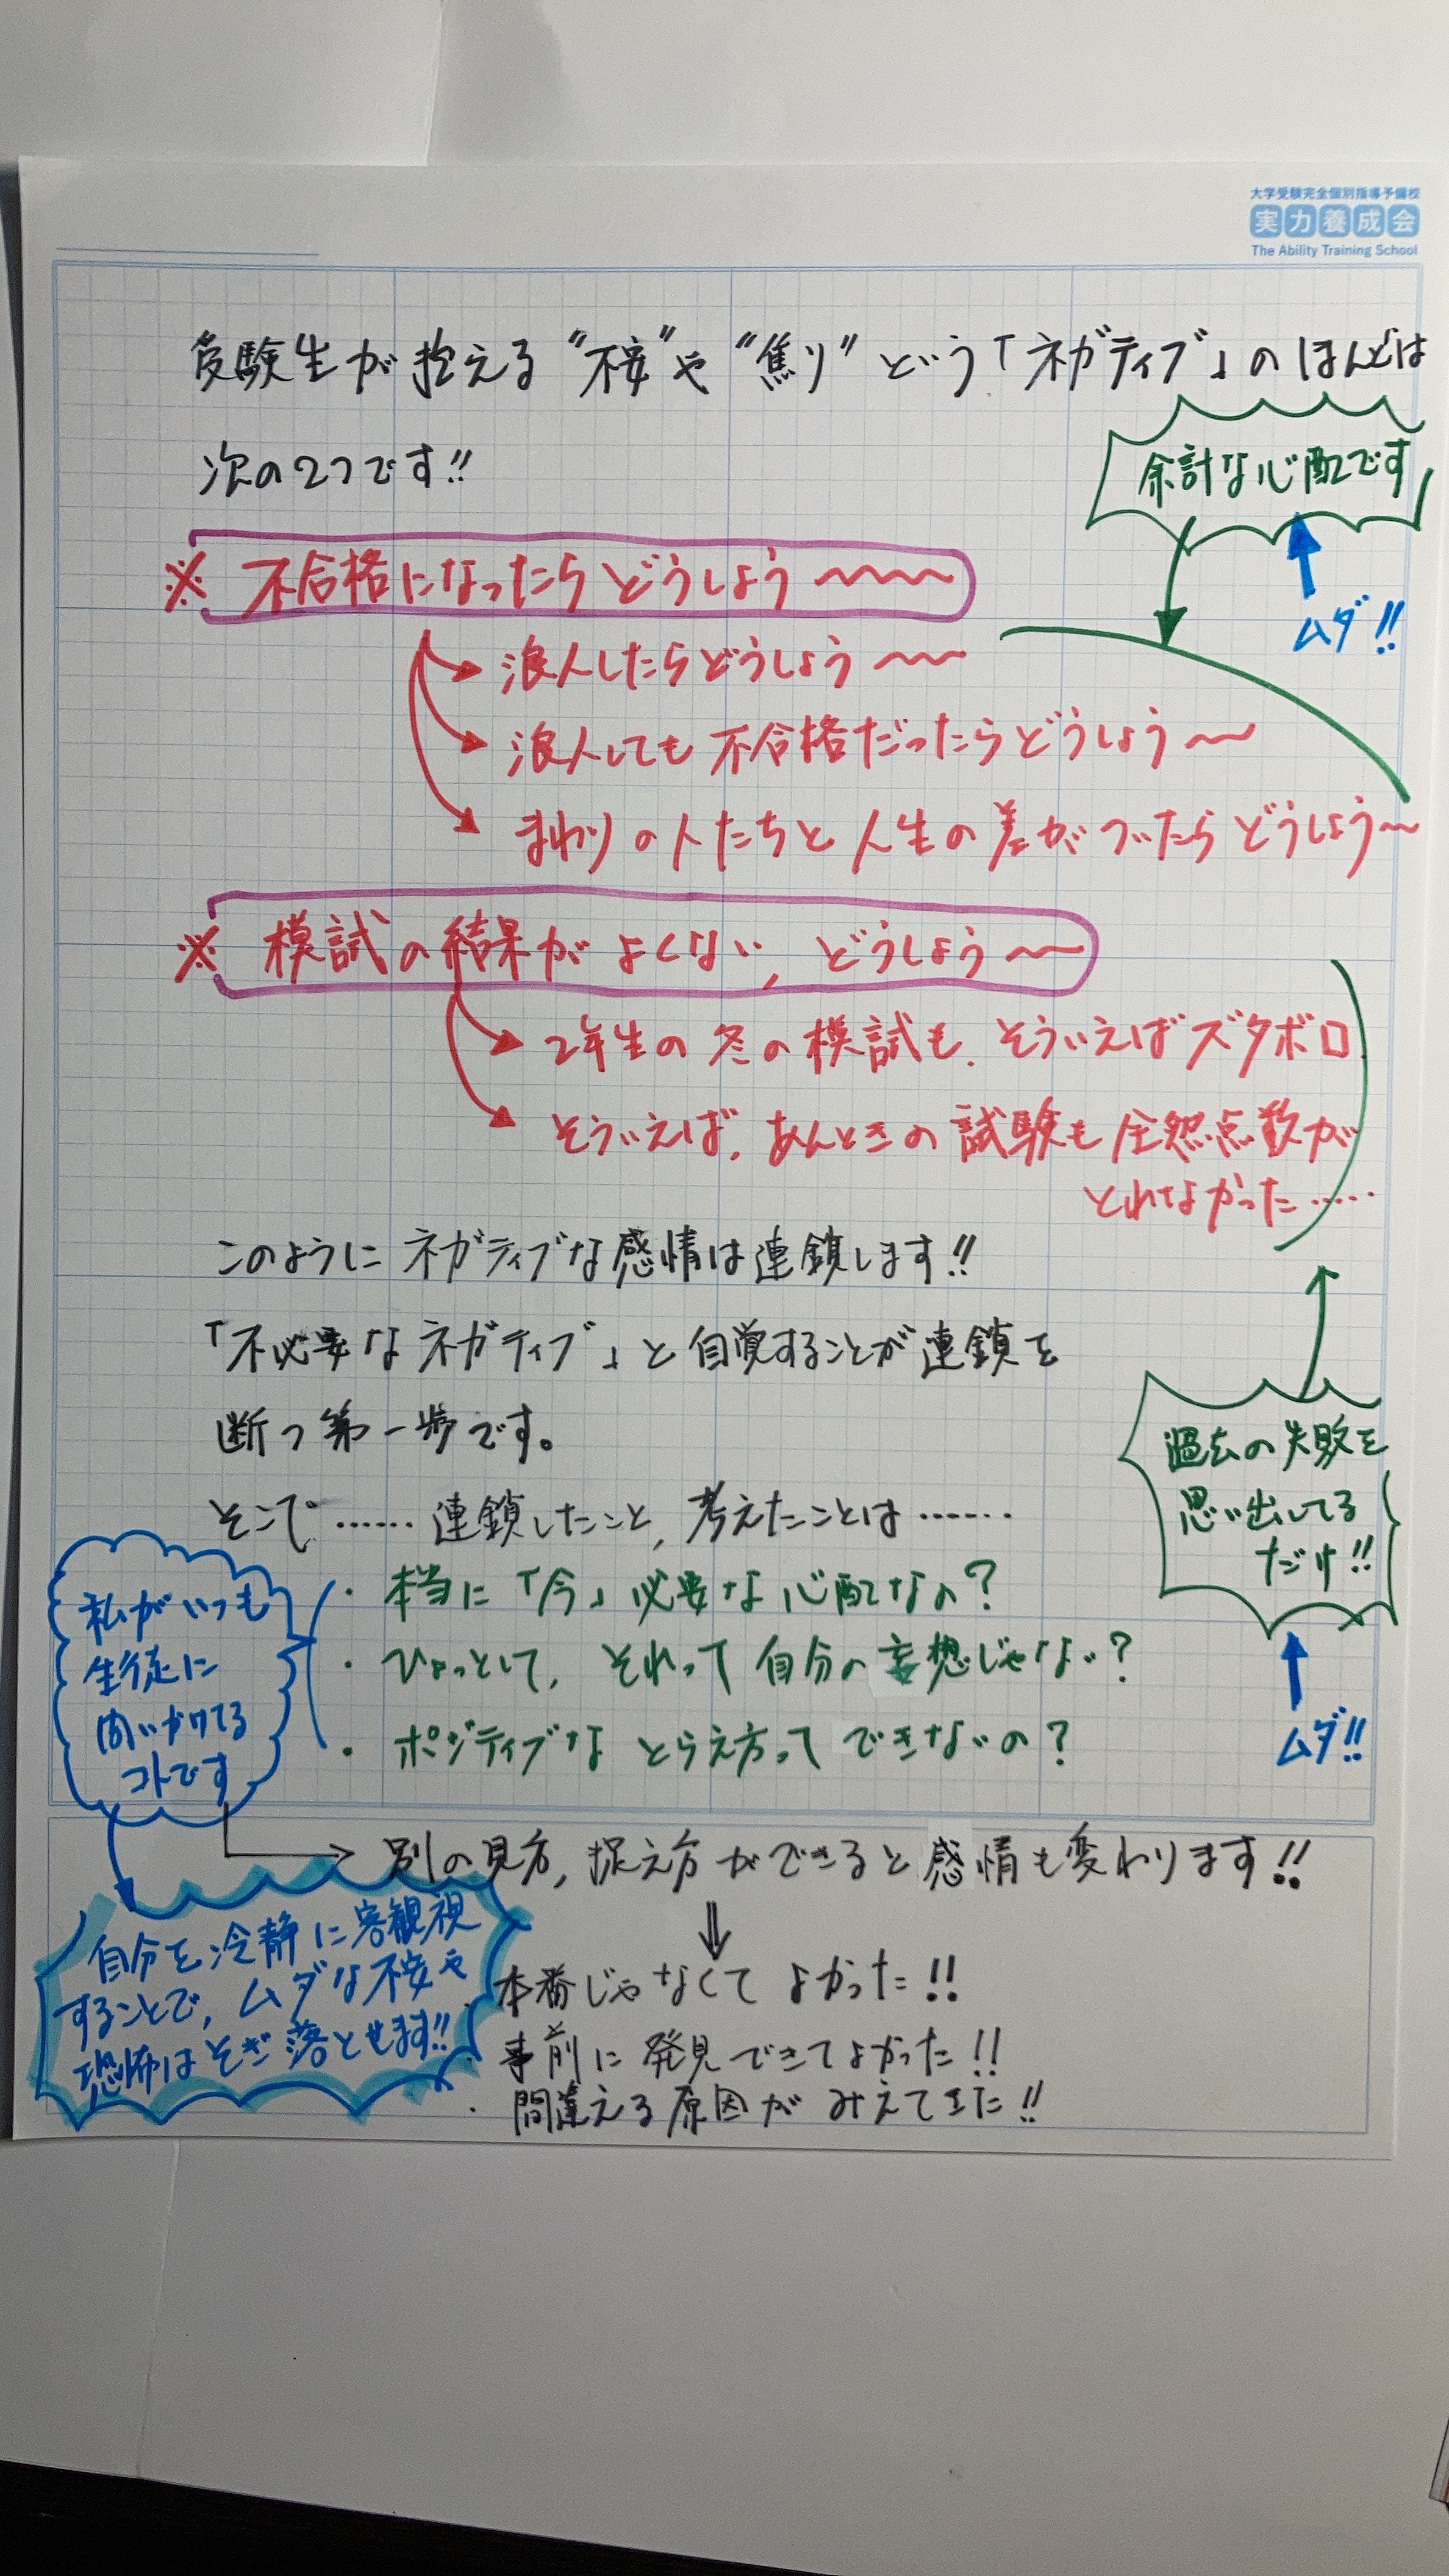 大学受験完全個別指導予備校
実力養成会
The Ability Training School
受験生が抱える"不安"や"焦り"という「ネガティブ」のほとんどは
次の2つです!!
余計な心配です
ムダ!!
※ 不合格になったらどうしよう〜〜〜〜
浪人したらどうしよう〜〜
浪人しても不合格だったらどうしよう〜
まわりの人たちと人生の差がついたらどうしよう〜
※ 模試の結果がよくない, どうしよう〜〜
2年生の冬の模試も、そういえばズタボロ
そういえば, あんときの試験も全然点数が
とれなかった……
このようにネガティブな感情は連鎖します!!
「不必要なネガティブ」と自覚することが連鎖を
断つ第一歩です。
過去の失敗を
思い出してる
だけ!!
ムダ!!
そこで……連鎖したこと, 考えたことは……
私がいつも
生徒に
問いかけてる
コトです
・本当に「今」必要な心配なの?
・ひょっとして, それって自分の妄想じゃない?
・ポジティブなとらえ方ってできないの?
別の見方, 捉え方ができると感情も変わります!!
⇓
自分を冷静に客観視
することで, ムダな不安や
恐怖はそぎ落とせます!!
・本番じゃなくてよかった!!
・事前に発見できてよかった!!
・間違える原因がみえてきた!!